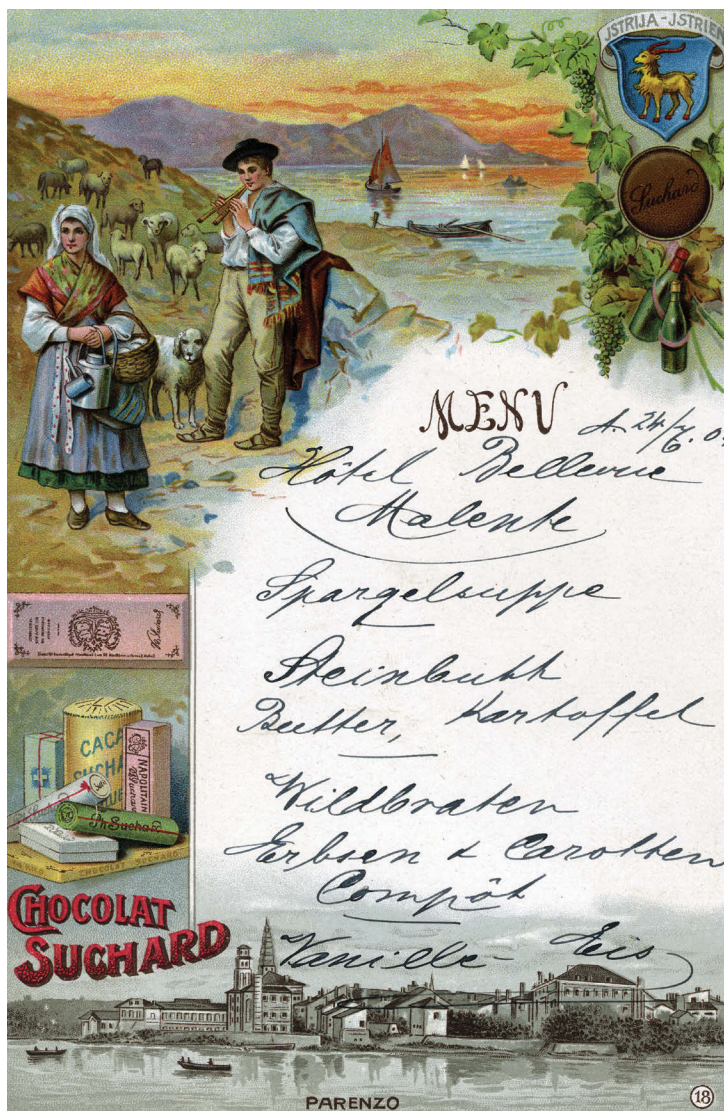 JSTRIJA - JSTRIEN
Suchard
MENU
d. 24/6. 0
Hôtel Bellevue
Malente
Spargelsuppe
Steinbutt
Butter, Kartoffel
Wildbraten
Erbsen & Carotten
Compôt
Vanille- Eis
CACA
SUCHA
NAPOLITAIN
Ph Suchard
CHOCOLAT SUCHARD
CHOCOLAT
SUCHARD
PARENZO
18